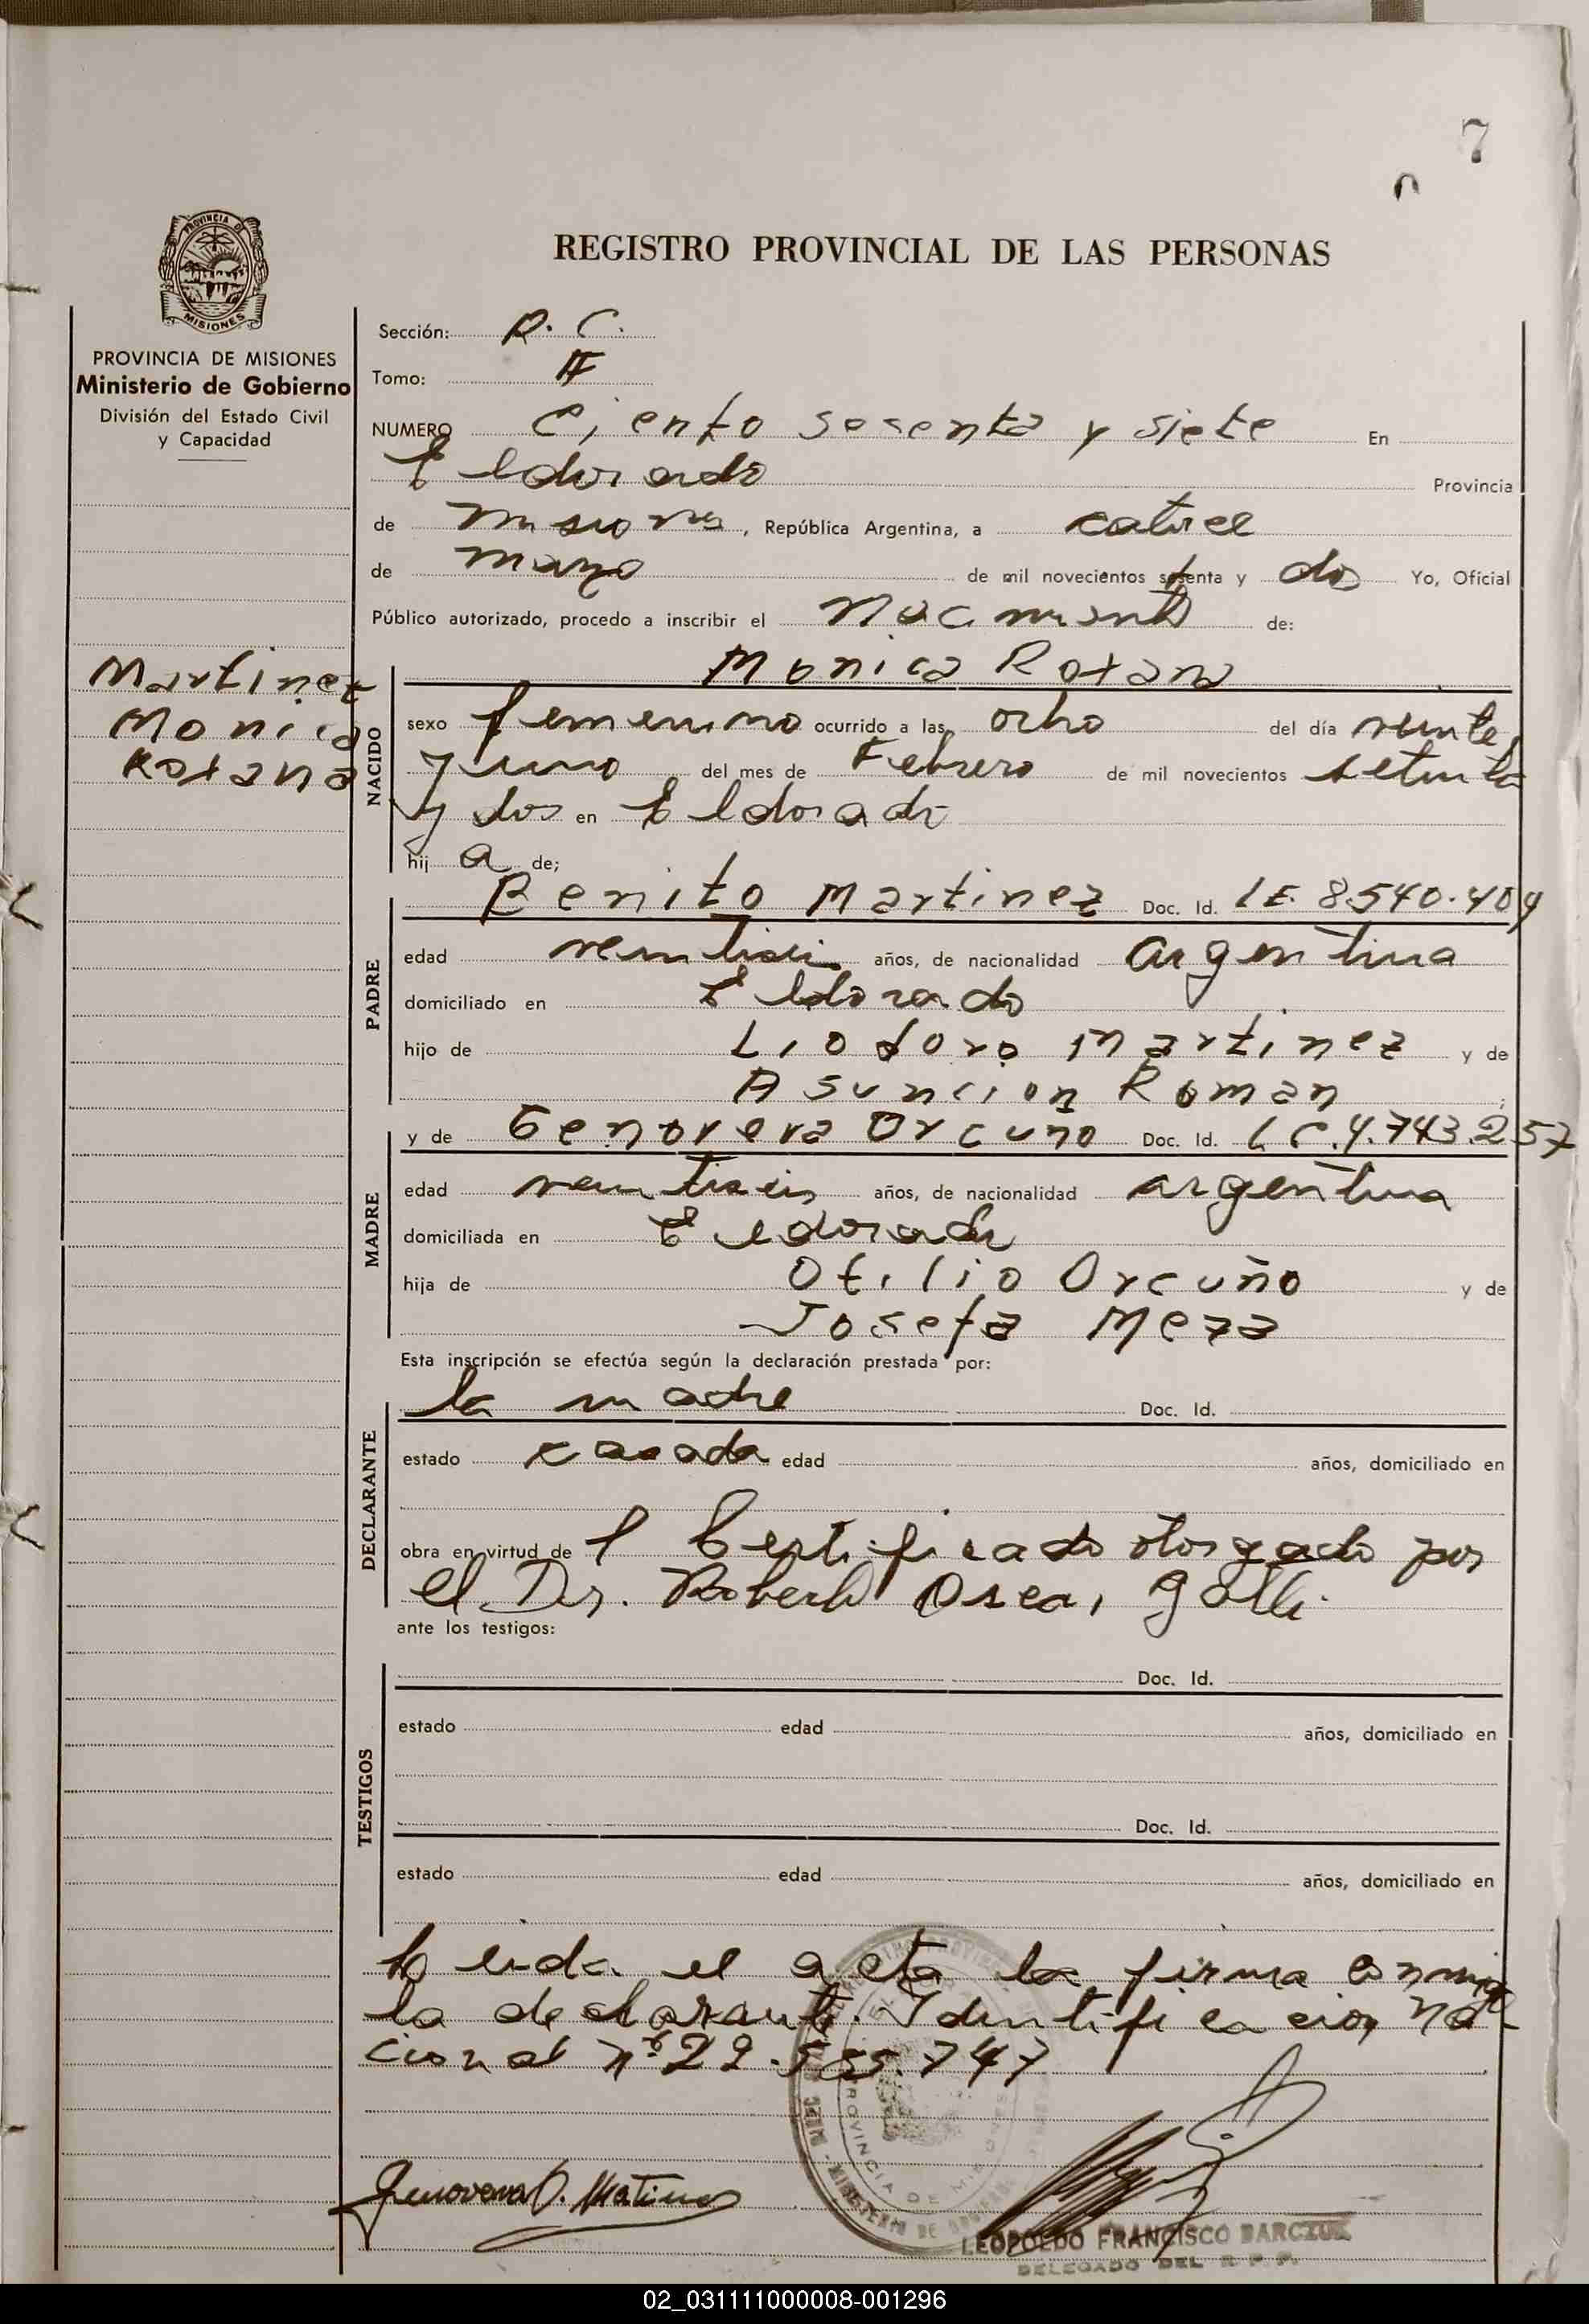 7
REGISTRO PROVINCIAL DE LAS PERSONAS
PROVINCIA DE
MISIONES
PROVINCIA DE MISIONES
Ministerio de Gobierno
División del Estado Civil
y Capacidad
Martinez
Monica
Roxana
Sección: R. C.
Tomo:
NUMERO Ciento sesenta y siete En
Eldorado Provincia
de Misiones, República Argentina, a catorce
de marzo de mil novecientos setenta y dos Yo, Oficial
Público autorizado, procedo a inscribir el Nacimiento de:
Monica Roxana
NACIDO
sexo femenino ocurrido a las ocho del día veinte
y uno del mes de Febrero de mil novecientos setenta
y dos en Eldorado
hij a de;
Benito Martinez Doc. Id. LE. 8.540.404
PADRE
edad veintiseis años, de nacionalidad argentina
domiciliado en Eldorado
hijo de Liodoro Martinez y de
Asuncion Roman ;
y de Genoveva Orcuño Doc. Id. LC. 4.743.257
MADRE
edad veintiseis años, de nacionalidad argentina
domiciliada en Eldorado
hija de Otilio Orcuño y de
Josefa Meza
Esta inscripción se efectúa según la declaración prestada por:
la madre Doc. Id.
DECLARANTE
estado casada edad años, domiciliado en
obra en virtud de l Certificado otorgado por
el Dr. Roberto Oscar Galli.
ante los testigos:
TESTIGOS
Doc. Id.
estado edad años, domiciliado en
Doc. Id.
estado edad años, domiciliado en
Leida el acta la firma conmigo
la declarante. Identificacion Na
cional nº 22.585.747
PROVINCIA DE MISIONES
Genoveva O. Martinez
LEOPOLDO FRANCISCO BARCZUK
DELEGADO DEL R. P. P.
02_031111000008-001296